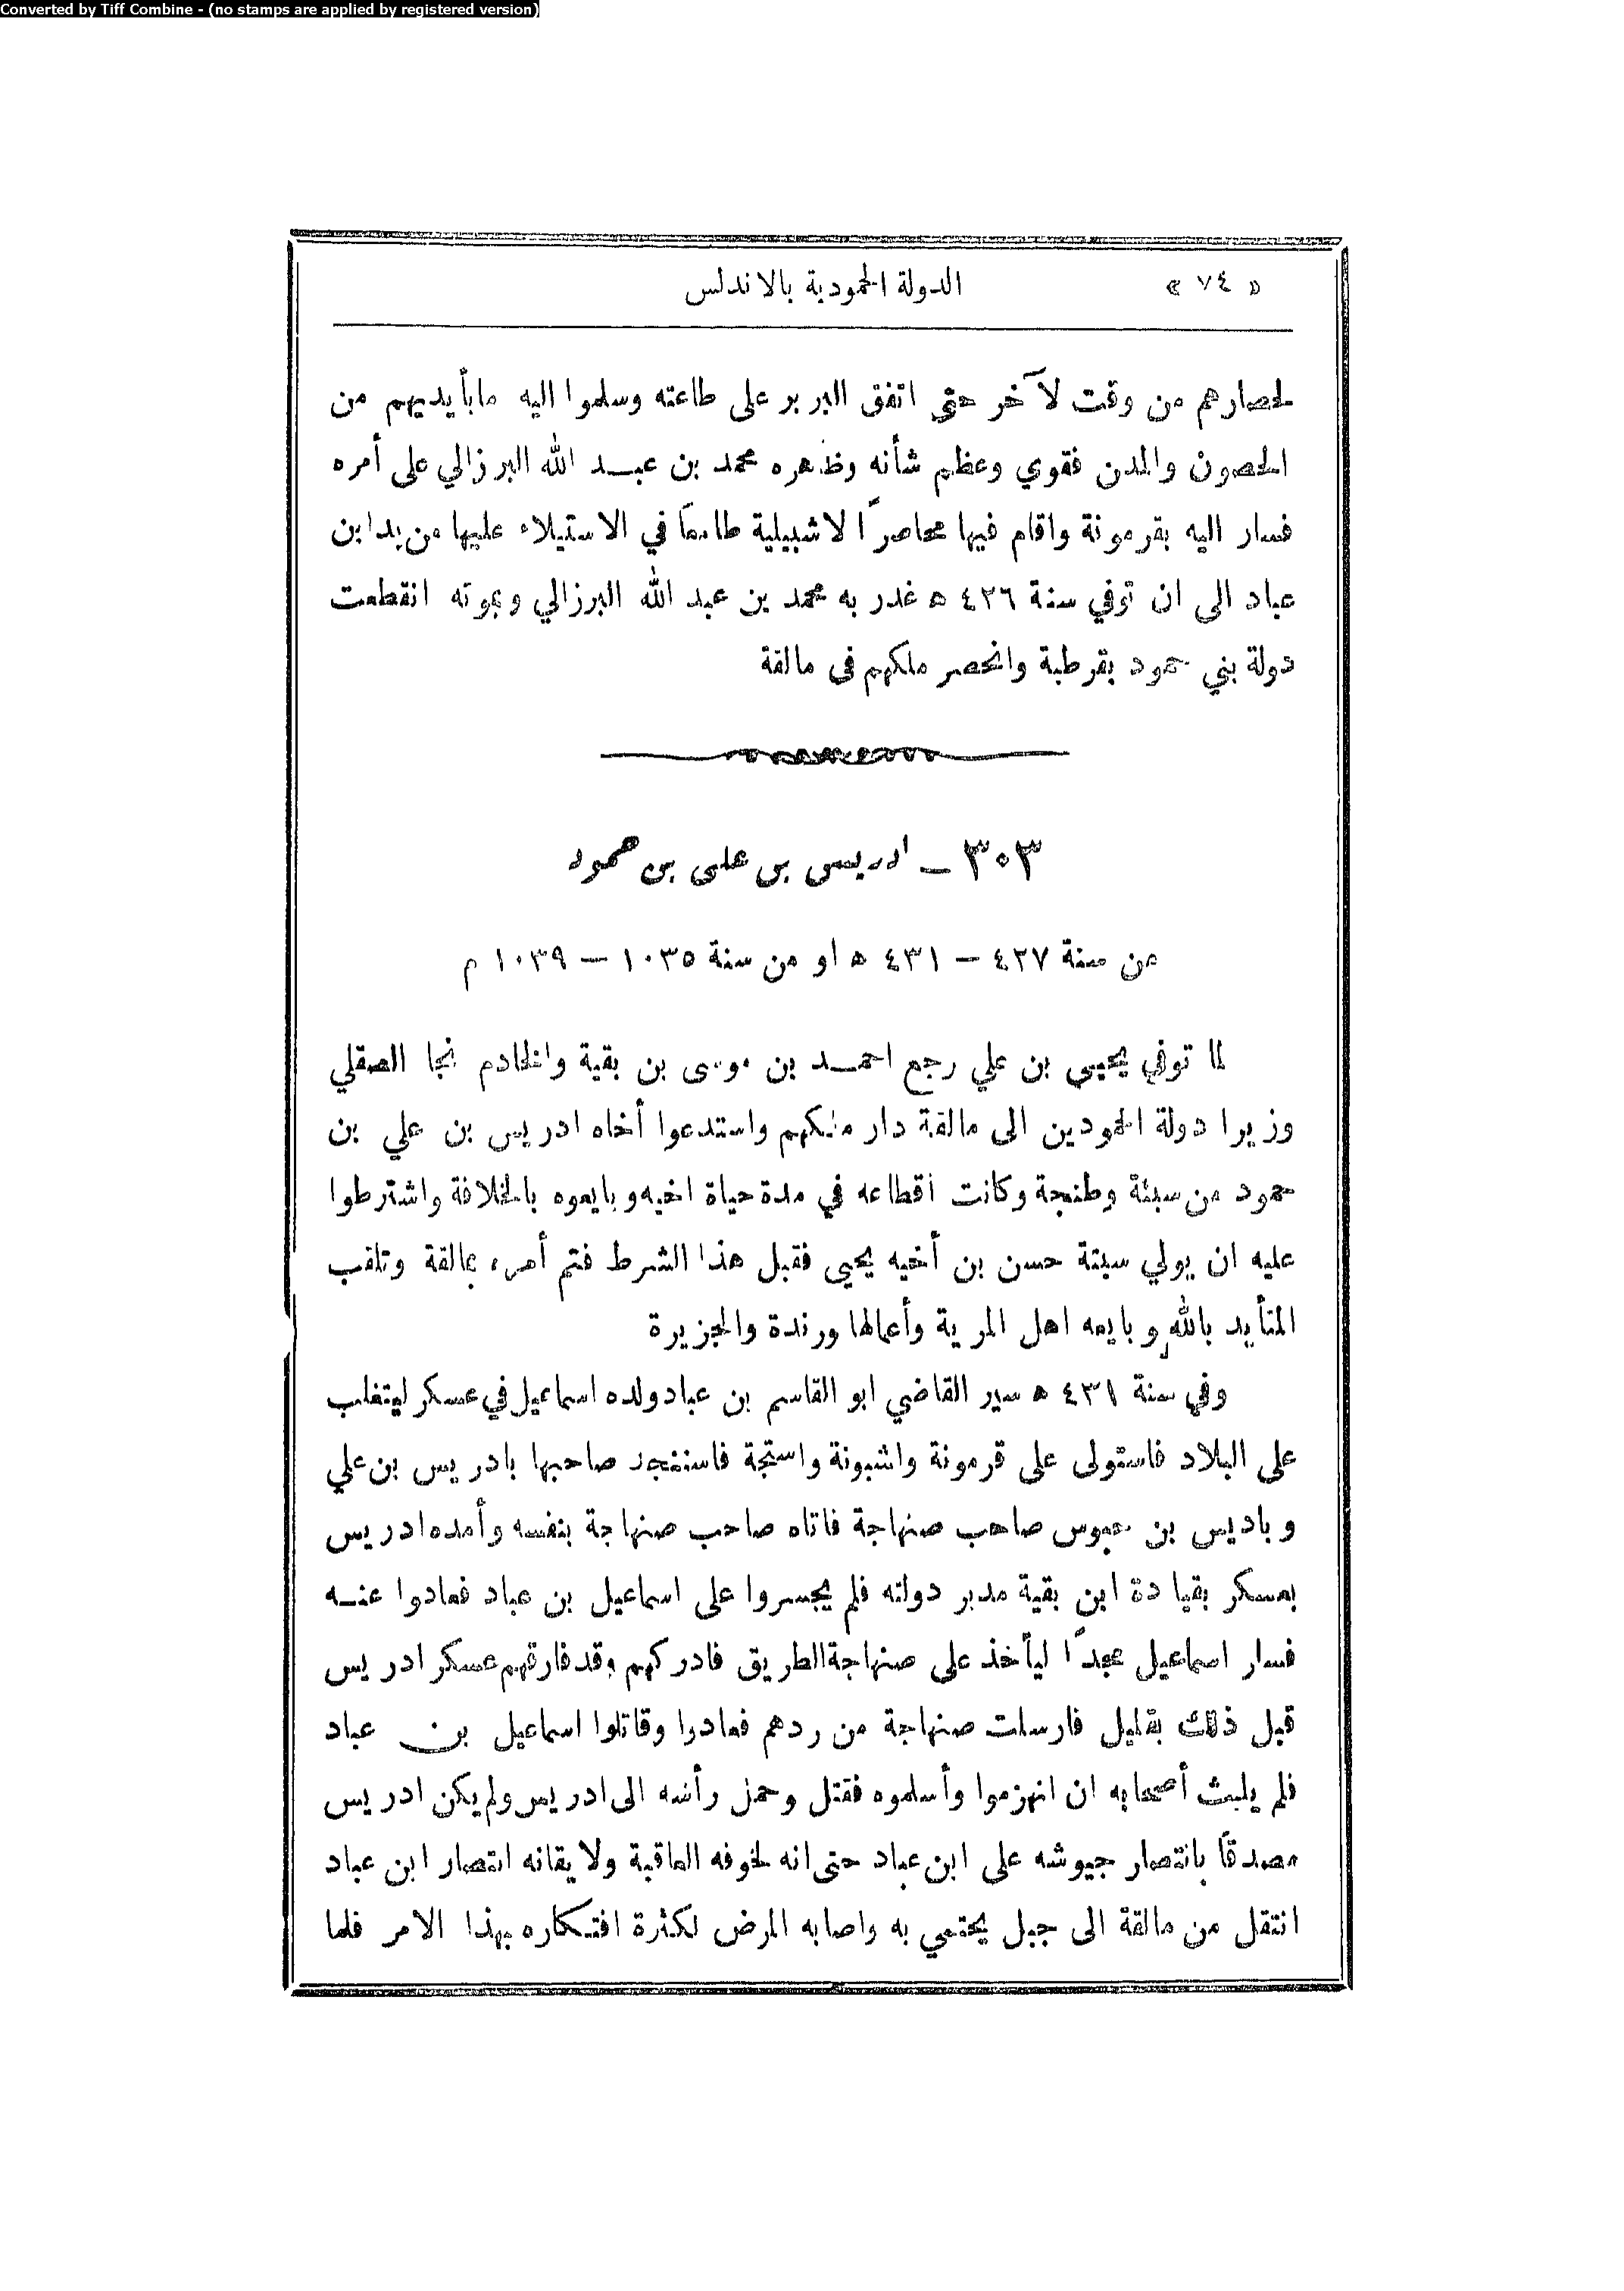 Converted by Tiff Combine - (no stamps are applied by registered version)
« ٧٤ » الدولة الحمودية بالاندلس
لحصارهم من وقت لآخر حتى اتفق البربر على طاعته وسلموا اليه مابأيديهم من
الحصون والمدن فقوي وعظم شأنه وظاهره محمد بن عبد الله البرزالي على أمره
فسار اليه بقرمونة واقام فيها محاصرًا لاشبيلية طامعًا في الاستيلاء عليها من يد ابن
عباد الى ان توفي سنة ٤٢٦ ه غدر به محمد بن عبد الله البرزالي وبموته انقطعت
دولة بني حمود بقرطبة وانحصر ملكهم في مالقة
٣٠٣ – ادريس بن على بن حمود
من سنة ٤٢٧ – ٤٣١ ه او من سنة ١٠٣٥ – ١٠٣٩ م
لما توفي يحيى بن علي رجع احمد بن موسى بن بقية والخادم نجا الصقلي
وزيرا دولة الحمودين الى مالقة دار ملكهم واستدعوا أخاه ادريس بن علي بن
حمود من سبتة وطنجة وكانت اقطاعه في مدة حياة اخيه وبايعوه بالخلافة واشترطوا
عليه ان يولي سبتة حسن بن أخيه يحيى فقبل هذا الشرط فتم أمره بمالقة وتلقب
المتأيد بالله وبايعه اهل المرية وأعمالها ورندة والجزيرة
وفي سنة ٤٣١ ه سير القاضي ابو القاسم بن عباد ولده اسماعيل في عسكر ليتغلب
على البلاد فاستولى على قرمونة واشبونة واستجة فاستنجد صاحبها بادريس بن علي
وباديس بن حبوس صاحب صنهاجة فاتاه صاحب صنهاجة بنفسه وأمده ادريس
بعسكر بقيادة ابن بقية مدبر دولته فلم يجسروا على اسماعيل بن عباد فعادوا عنه
فسار اسماعيل مجدًا ليأخذ على صنهاجة الطريق فادركهم وقد فارقهم عسكر ادريس
قبل ذلك بقليل فارسلت صنهاجة من ردهم فعادوا وقاتلوا اسماعيل بن عباد
فلم يلبث أصحابه ان انهزموا وأسلموه فقتل وحمل رأسه الى ادريس ولم يكن ادريس
مصدقًا بانتصار جيوشه على ابن عباد حتى انه لخوفه العاقبة ولايقانه انتصار ابن عباد
انتقل من مالقة الى جبل يحتمي به واصابه المرض لكثرة افتكاره بهذا الامر فلما